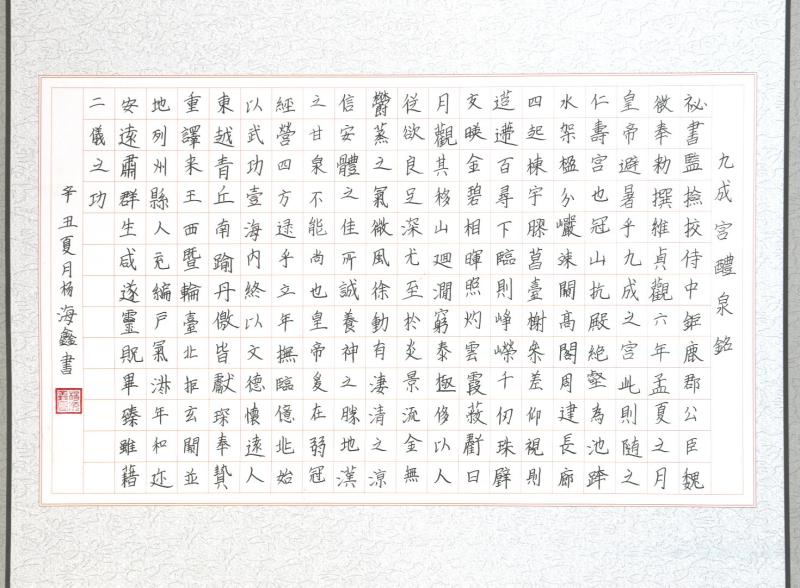 九成宮醴泉銘
祕書監撿挍侍中鉅鹿郡公臣魏
徵奉勅撰維貞觀六年孟夏之月
皇帝避暑乎九成之宮此則随之
仁壽宮也冠山抗殿絕壑為池跨
水架楹分巖竦闕高閣周建長廊
四起棟宇膠葛臺榭叅差仰視則
迢遰百尋下臨則崢嶸千仞珠壁
交暎金碧相暉照灼雲霞蔽虧日
月觀其移山廻澗窮泰極侈以人
從欲良足深尤至於炎景流金無
鬱蒸之氣微風徐動有淒清之涼
信安體之佳所誠養神之勝地漢
之甘泉不能尚也皇帝爰在弱冠
經營四方逯乎立年撫臨億兆始
以武功壹海內終以文德懷遠人
東越青丘南踰丹徼皆獻琛奉贄
重譯来王西暨輪臺北拒玄闕並
地列州縣人充編戶氣淑年和迩
安遠肅群生咸遂靈貺畢臻雖藉
二儀之功
辛丑夏月杨海鑫書